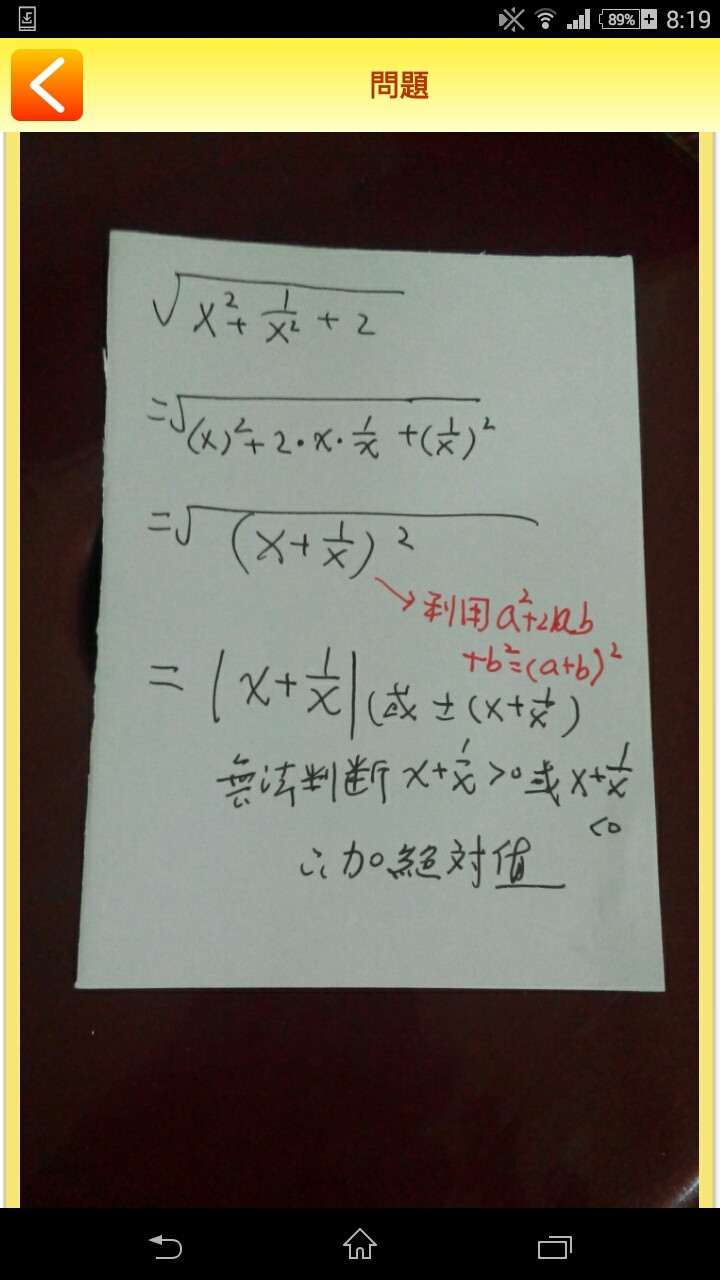 89%
8:19
問題
√(x²+1/x²+2)
=√((x)²+2·x·1/x+(1/x)²)
=√((x+1/x)²)
→利用a²+2ab
+b²=(a+b)²
=|x+1/x|(或±(x+1/x)
無法判斷x+1/x>0或x+1/x
<0
∴加絕対值